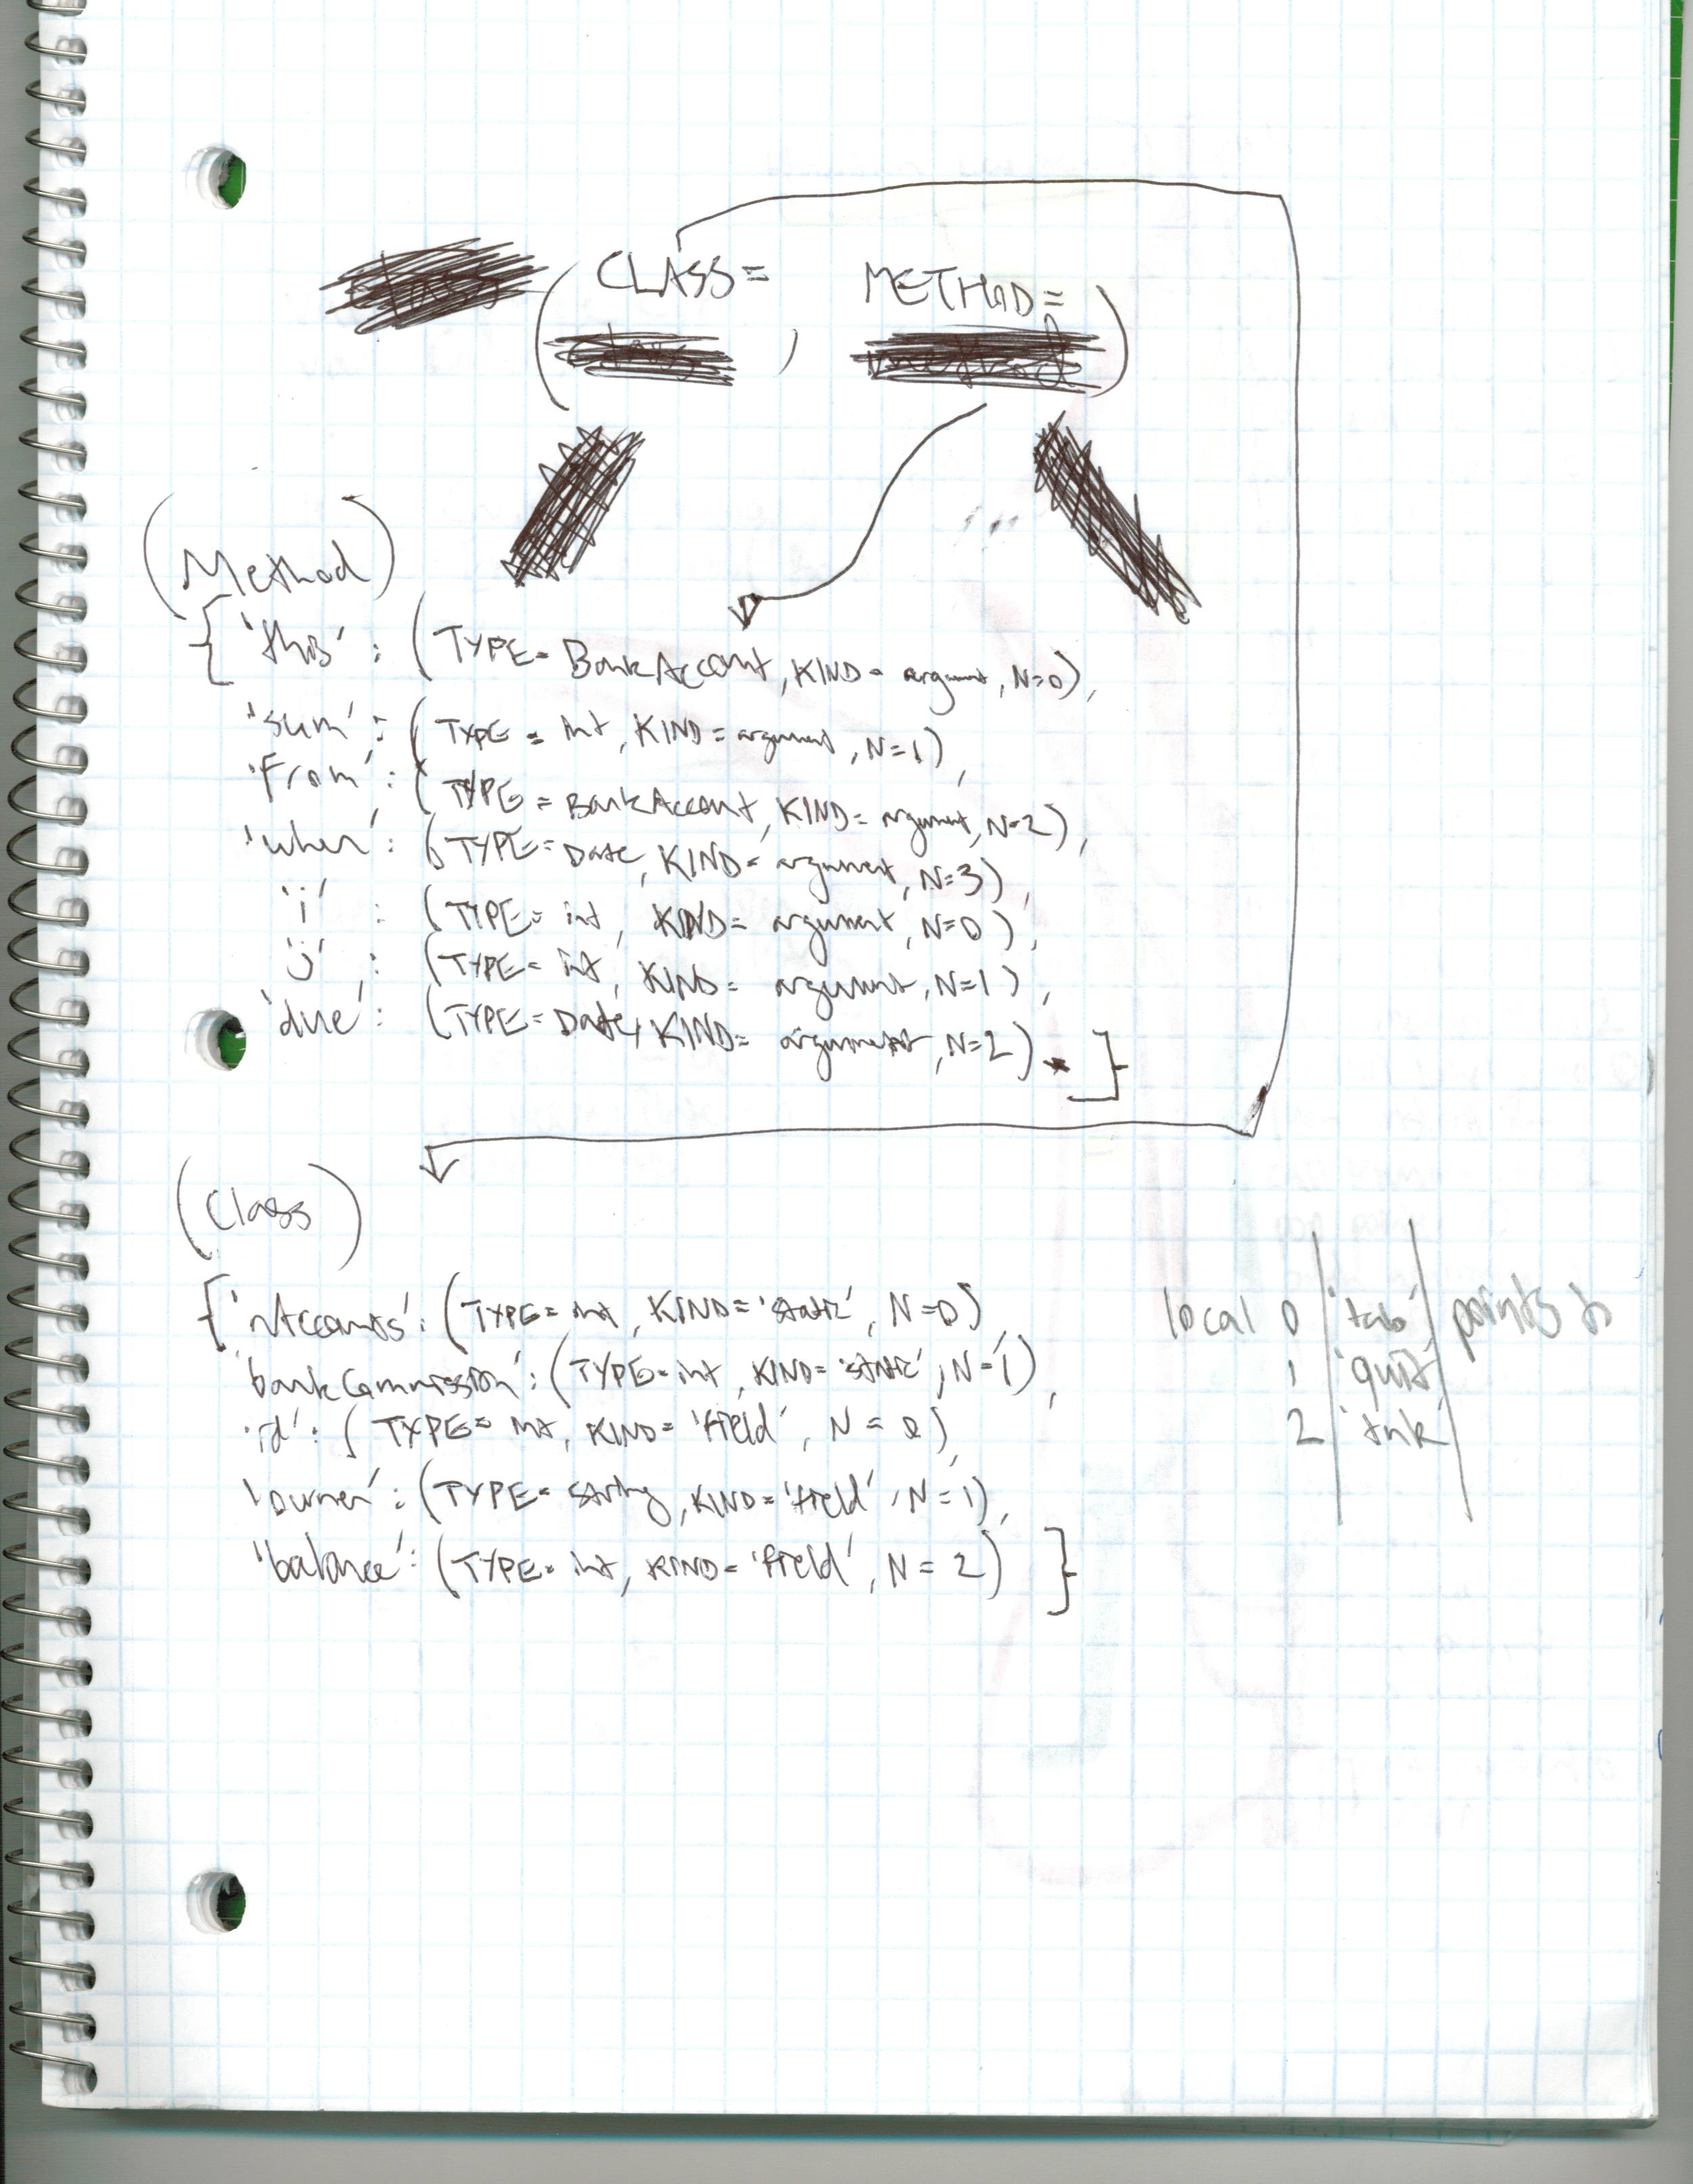 ( CLASS= , METHOD= )
(Method)
{ 'this' : (TYPE= BankAccount, KIND= argument, N=0),
'sum' : (TYPE = int, KIND = argument, N=1),
'from' : (TYPE = BankAccount, KIND= argument, N=2),
'when' : (TYPE= Date, KIND= argument, N=3),
'i' : (TYPE= int, KIND= argument, N=0),
'j' : (TYPE= int, KIND= argument, N=1),
'due' : (TYPE= Date, KIND= argument, N=2) }
(Class)
{ 'nAccounts' : (TYPE= int, KIND= 'static', N=0),
'bankCommission' : (TYPE= int, KIND= 'static', N=1),
'id' : (TYPE= int, KIND= 'field', N=0),
'owner' : (TYPE= string, KIND= 'field', N=1),
'balance' : (TYPE= int, KIND= 'field', N=2) }
local 0 | | points to
1 |
2 |